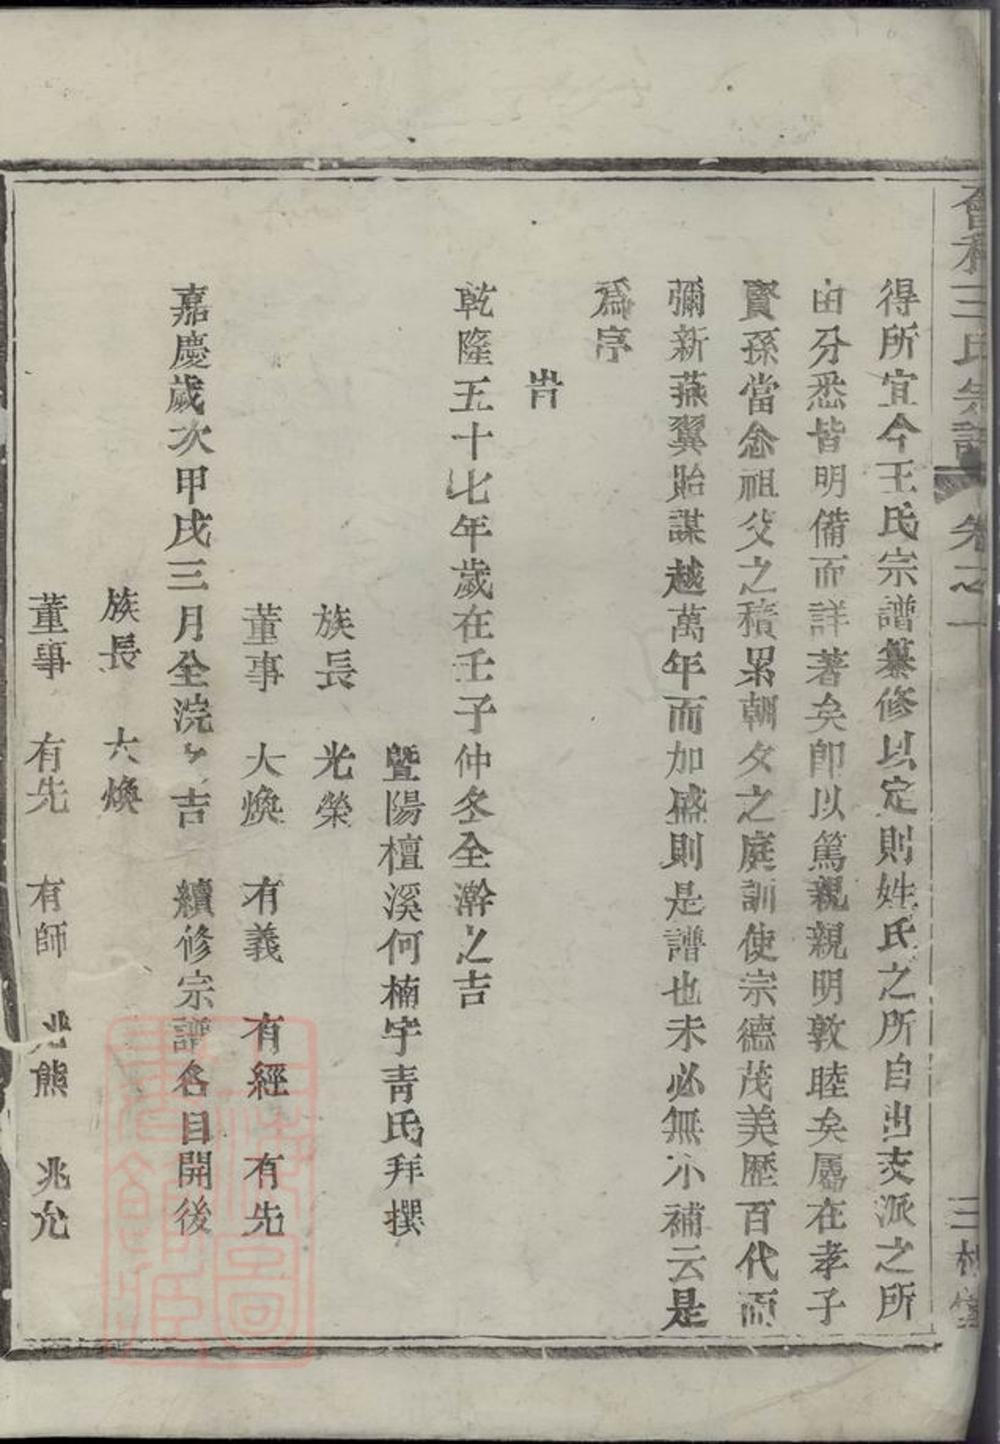 會稽王氏宗譜 卷之一 三槐堂
得所宜今王氏宗譜纂修以定則姓氏之所自出支派之所
由分悉皆明備而詳著矣即以篤親親明敦睦矣屬在孝子
賢孫當念祖父之積累朝夕之庭訓使宗德茂美歷百代而
彌新燕翼貽謀越萬年而加盛則是譜也未必無小補云是
為序
旹
乾隆五十七年歲在壬子仲冬全澣之吉
暨陽檀溪何楠宇青氏拜撰
族長 光榮
董事 大煥 有義 有經 有先
嘉慶歲次甲戌三月全浣之吉 續修宗譜名目開後
族長 大煥
董事 有先 有師 兆熊 兆允